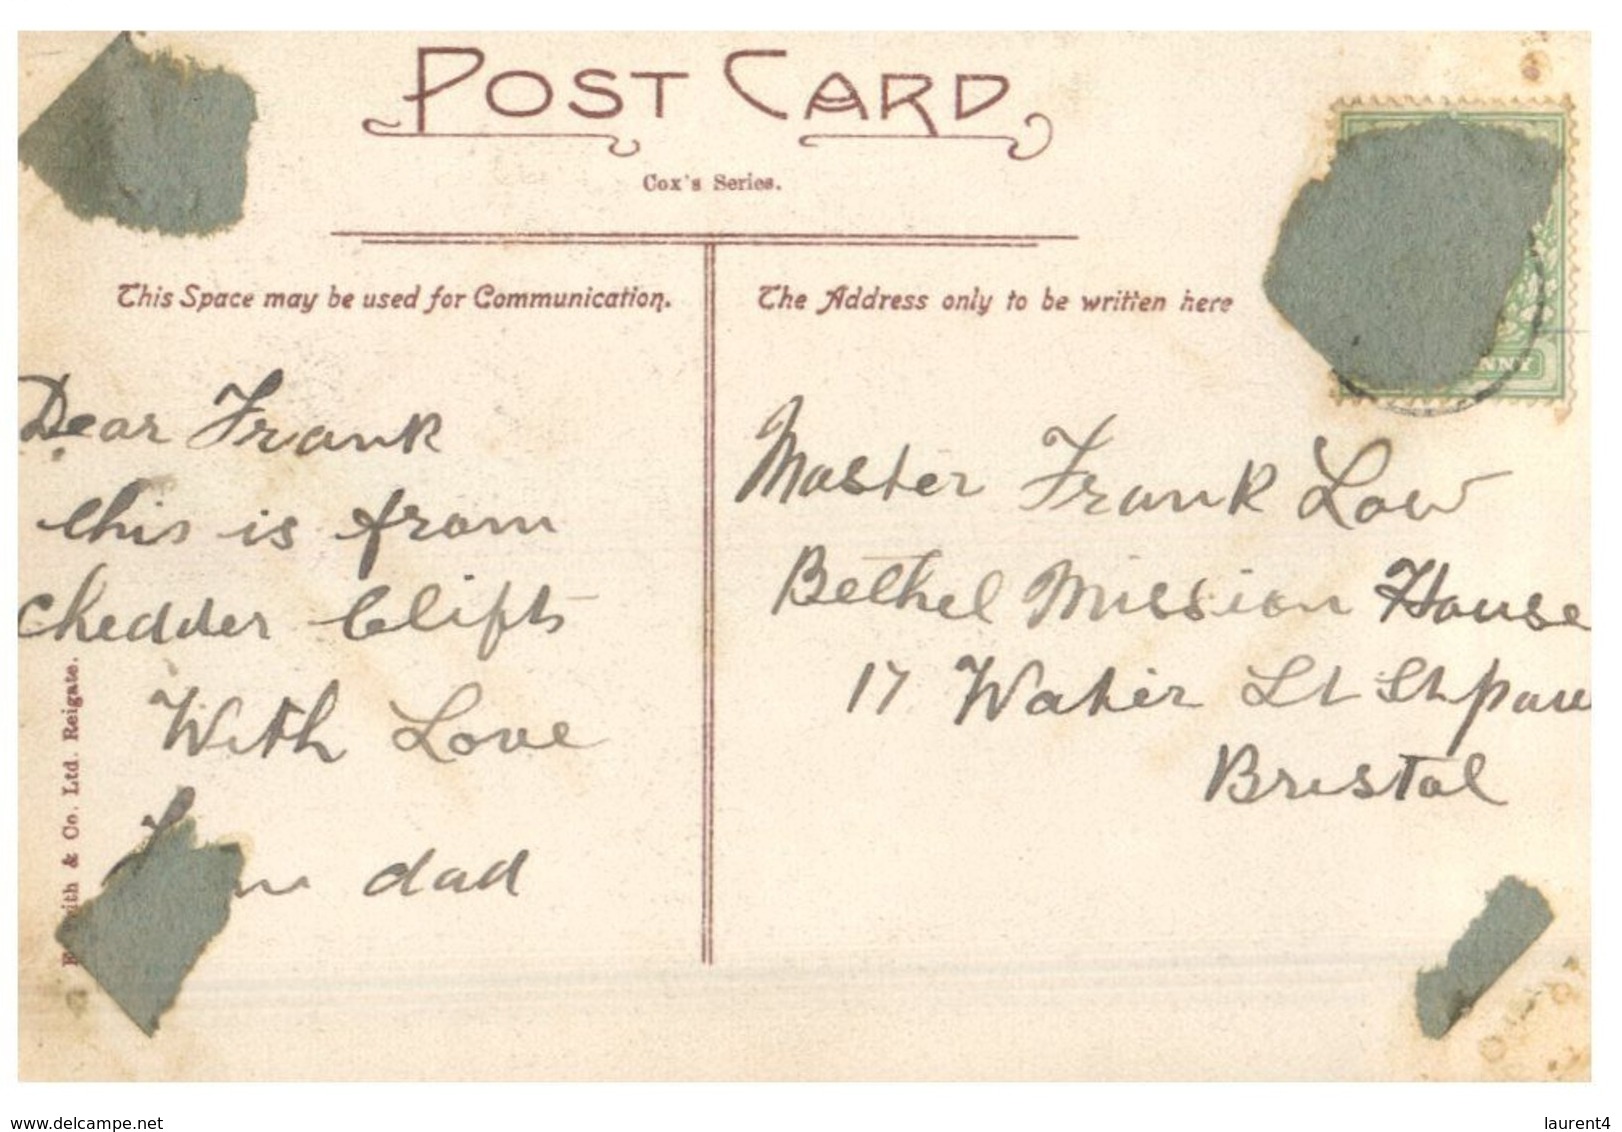 POST CARD
Cox's Series.
This Space may be used for Communication.
The Address only to be written here
NNY
Dear Frank
this is from
chedder Clifts
With Love
dad
Master Frank Low
Bethel Mission House
17 Water St St paw
Bristol
ith & Co. Ltd. Reigate.
www.delcampe.net
laurent4